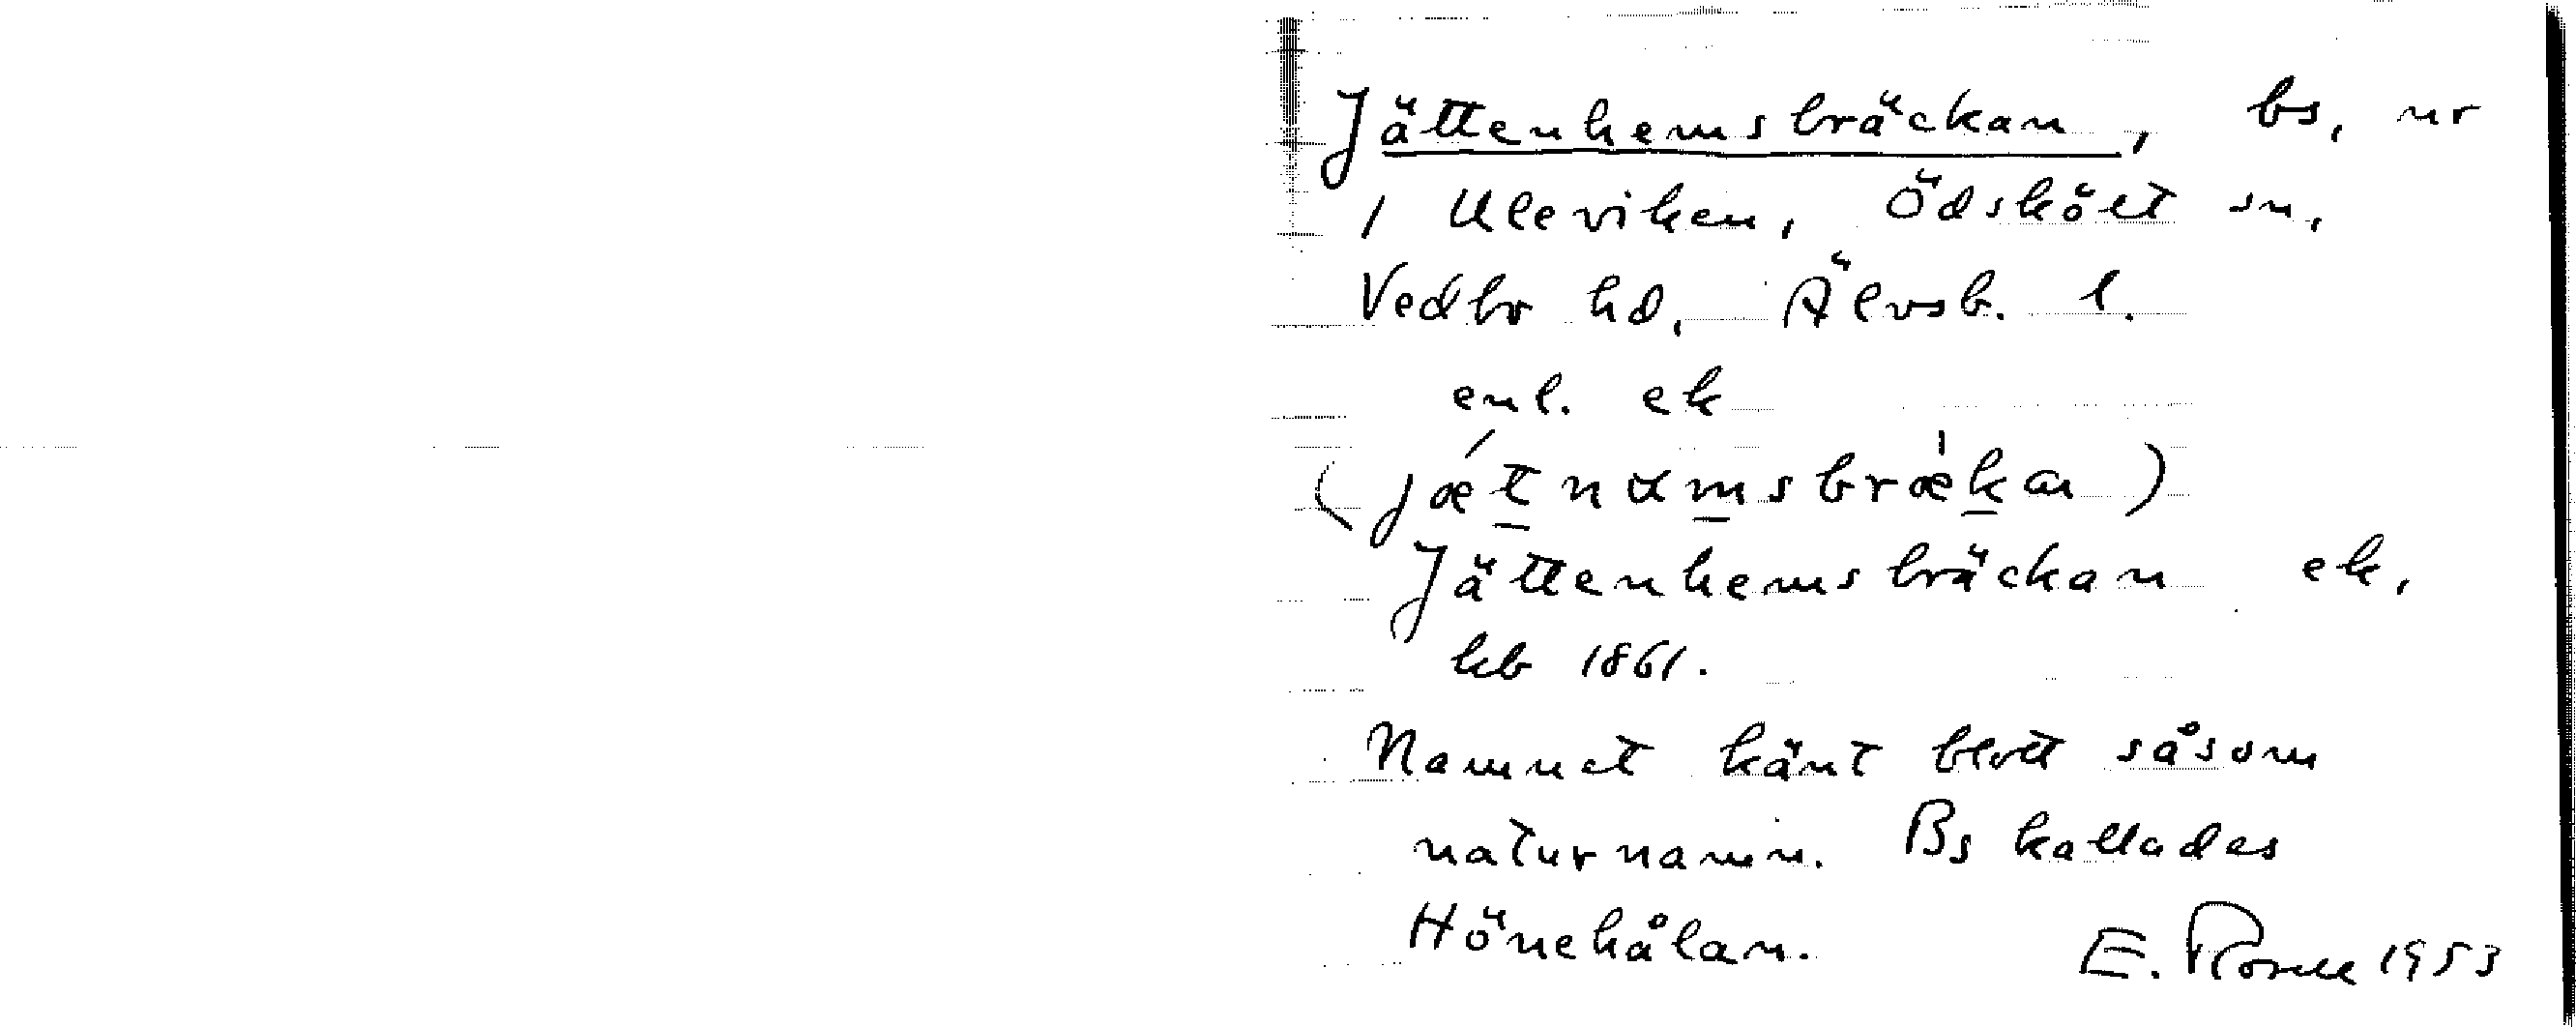 Jättenhemsbräckan, bs, nr
1 Uleviken, Ödskölt sn,
Vedbo hd, Älvsb. l.
enl. ek
(jætnæmsbrækan)
Jättenhemsbräckan ek,
kb 1861.
Namnet känt blott såsom
naturnamn. Bs kallades
Hönehålan.
E. Rosell 1953